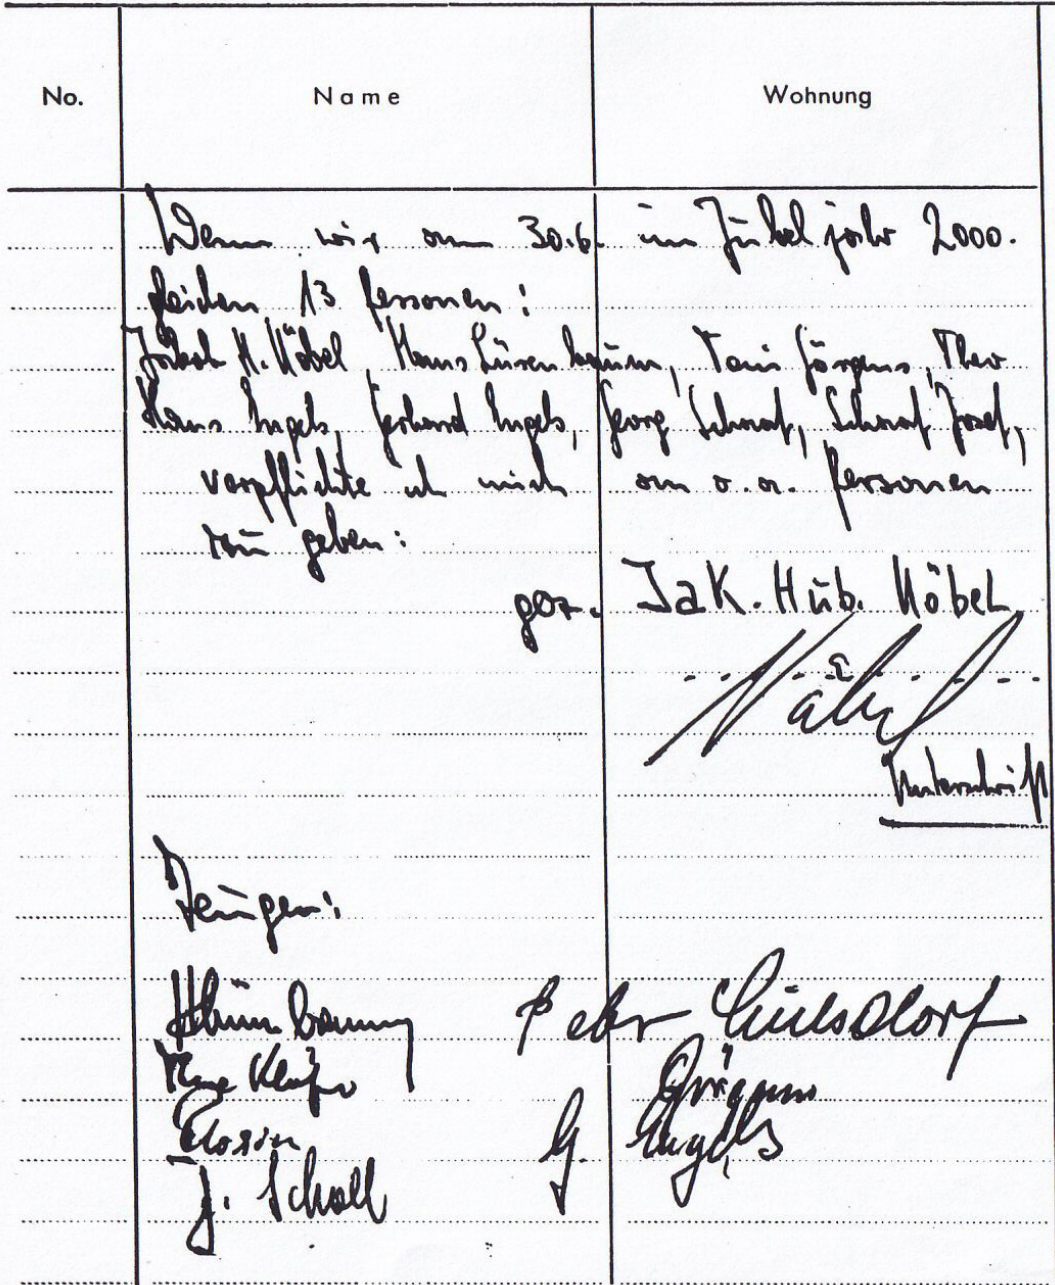 No. Name Wohnung
Wenn wir am 30.6. im Jubeljahr 2000.
13 Personen:
Jakob H. Nöbel, Hans Lürenbaum, Toni Jörgens, Theo
Hans Engels, Gerhard Engels, Georg Schraf, Schraf Josef,
verpflichte ich mich an o.a. Personen
zu geben:
gez. JaK. Hüb. Nöbel
Unterschrift
Zeugen:
Peter Lülsdorf
G. Engels
J. Scholl